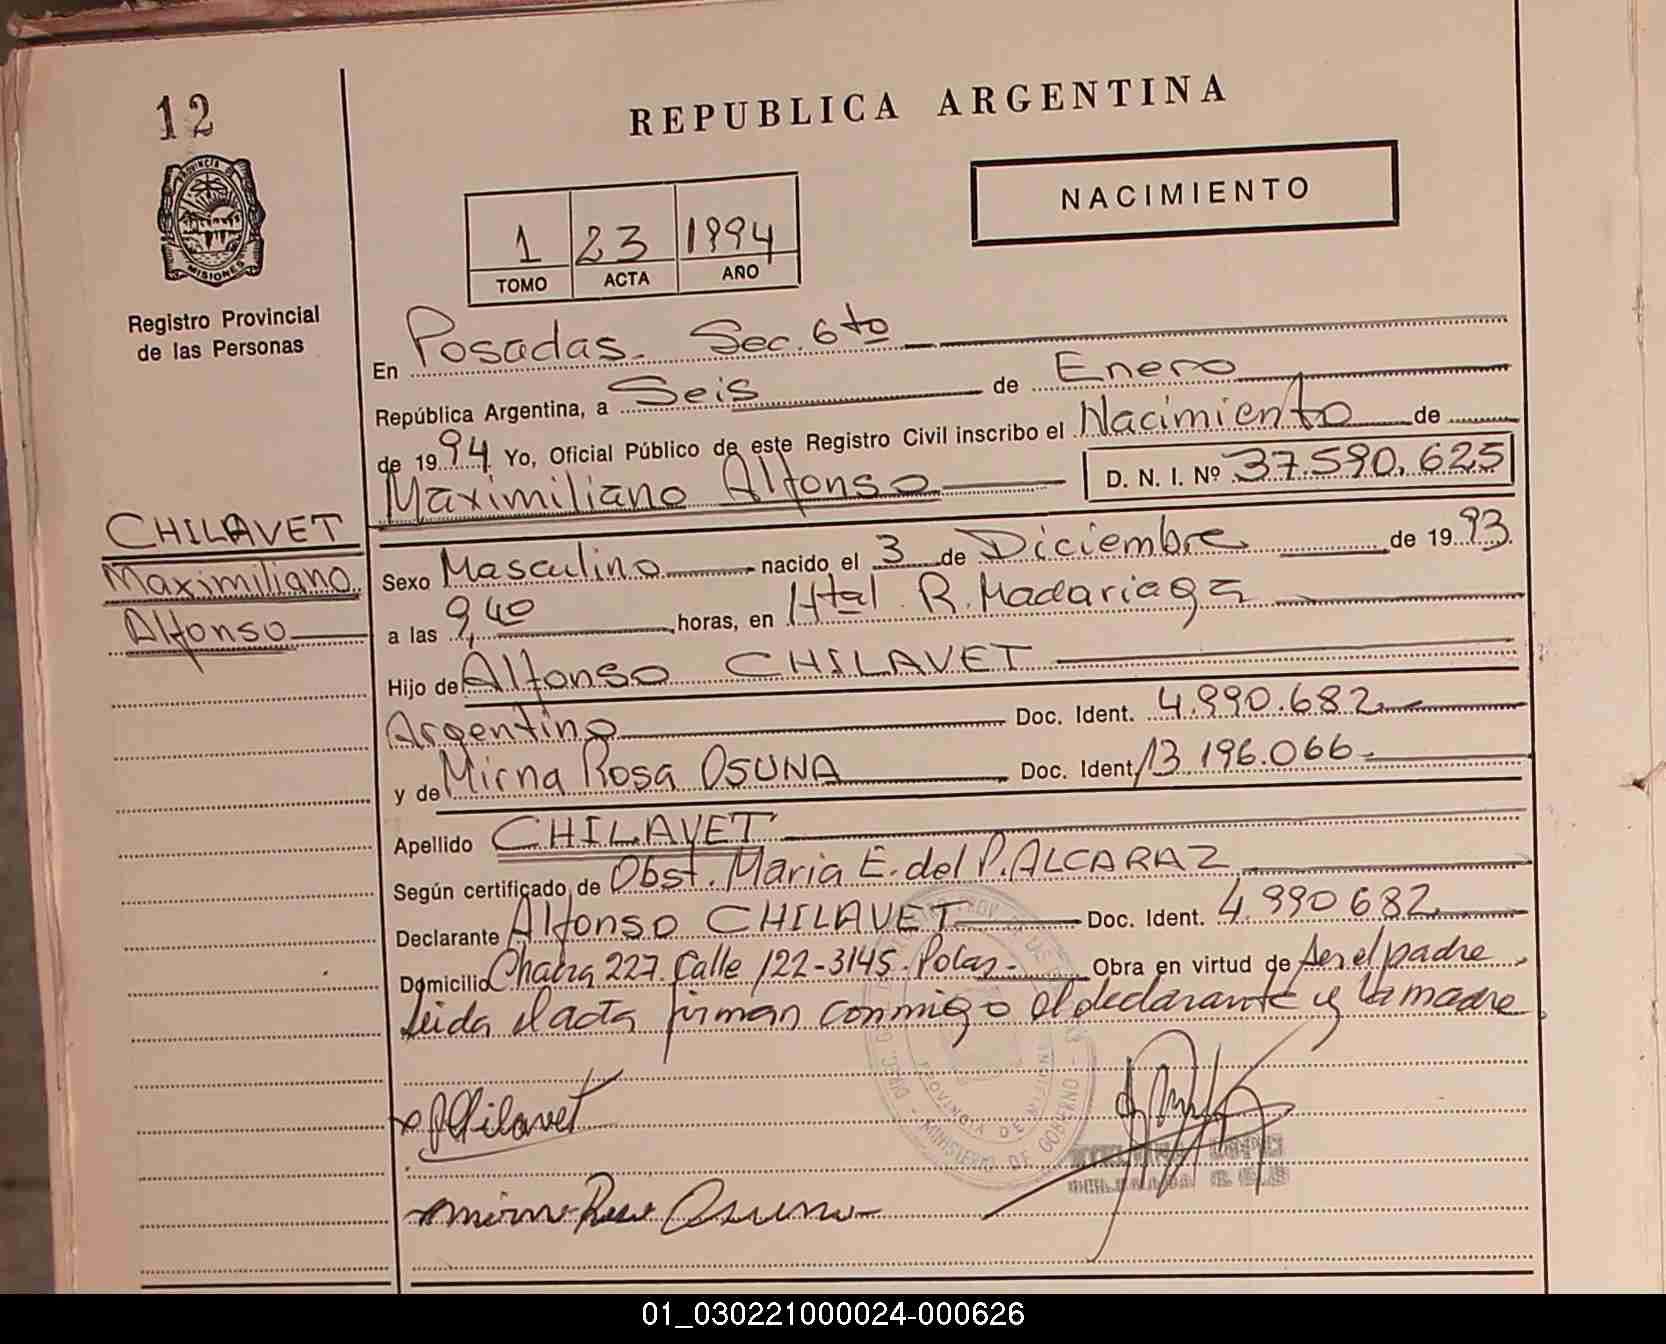 12
REPUBLICA ARGENTINA
NACIMIENTO
1 23 1994
TOMO ACTA AÑO
PROVINCIA DE
MISIONES
Registro Provincial
de las Personas
En Posadas. Sec. 6to
República Argentina, a Seis de Enero
de 1994 Yo, Oficial Público de este Registro Civil inscribo el Nacimiento de
Maximiliano Alfonso D. N. I. Nº 37.590.625
CHILAVET
Maximiliano
Alfonso
Sexo Masculino nacido el 3 de Diciembre de 1993.
a las 9,40 horas, en Htal. R. Madariaga
Hijo de Alfonso CHILAVET
Argentino Doc. Ident. 4.990.682
y de Mirna Rosa OSUNA Doc. Ident. 13.196.066
Apellido CHILAVET
Según certificado de Obst. Maria E. del P. ALCARAZ
Declarante Alfonso CHILAVET Doc. Ident. 4.990682
Domicilio Chacra 227. Calle 122-3145. Obra en virtud de ser el padre
Leida el acta firman conmigo el declarante y la madre
Chilavet
Mirna Rosa Osuna
PROVINCIA DE MISIONES
MINISTERIO DE GOBIERNO
01_030221000024-000626